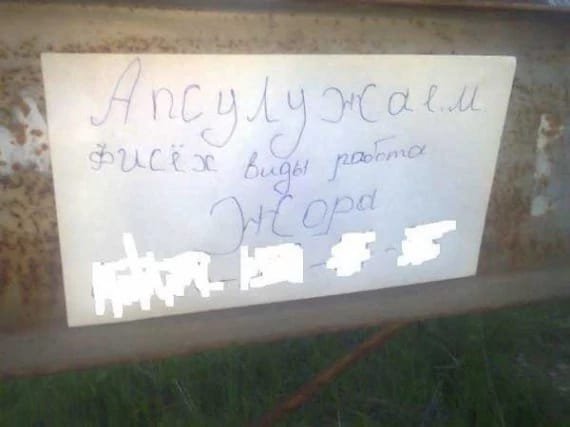 Апсулужаем.
фисёх виды работа
Жора